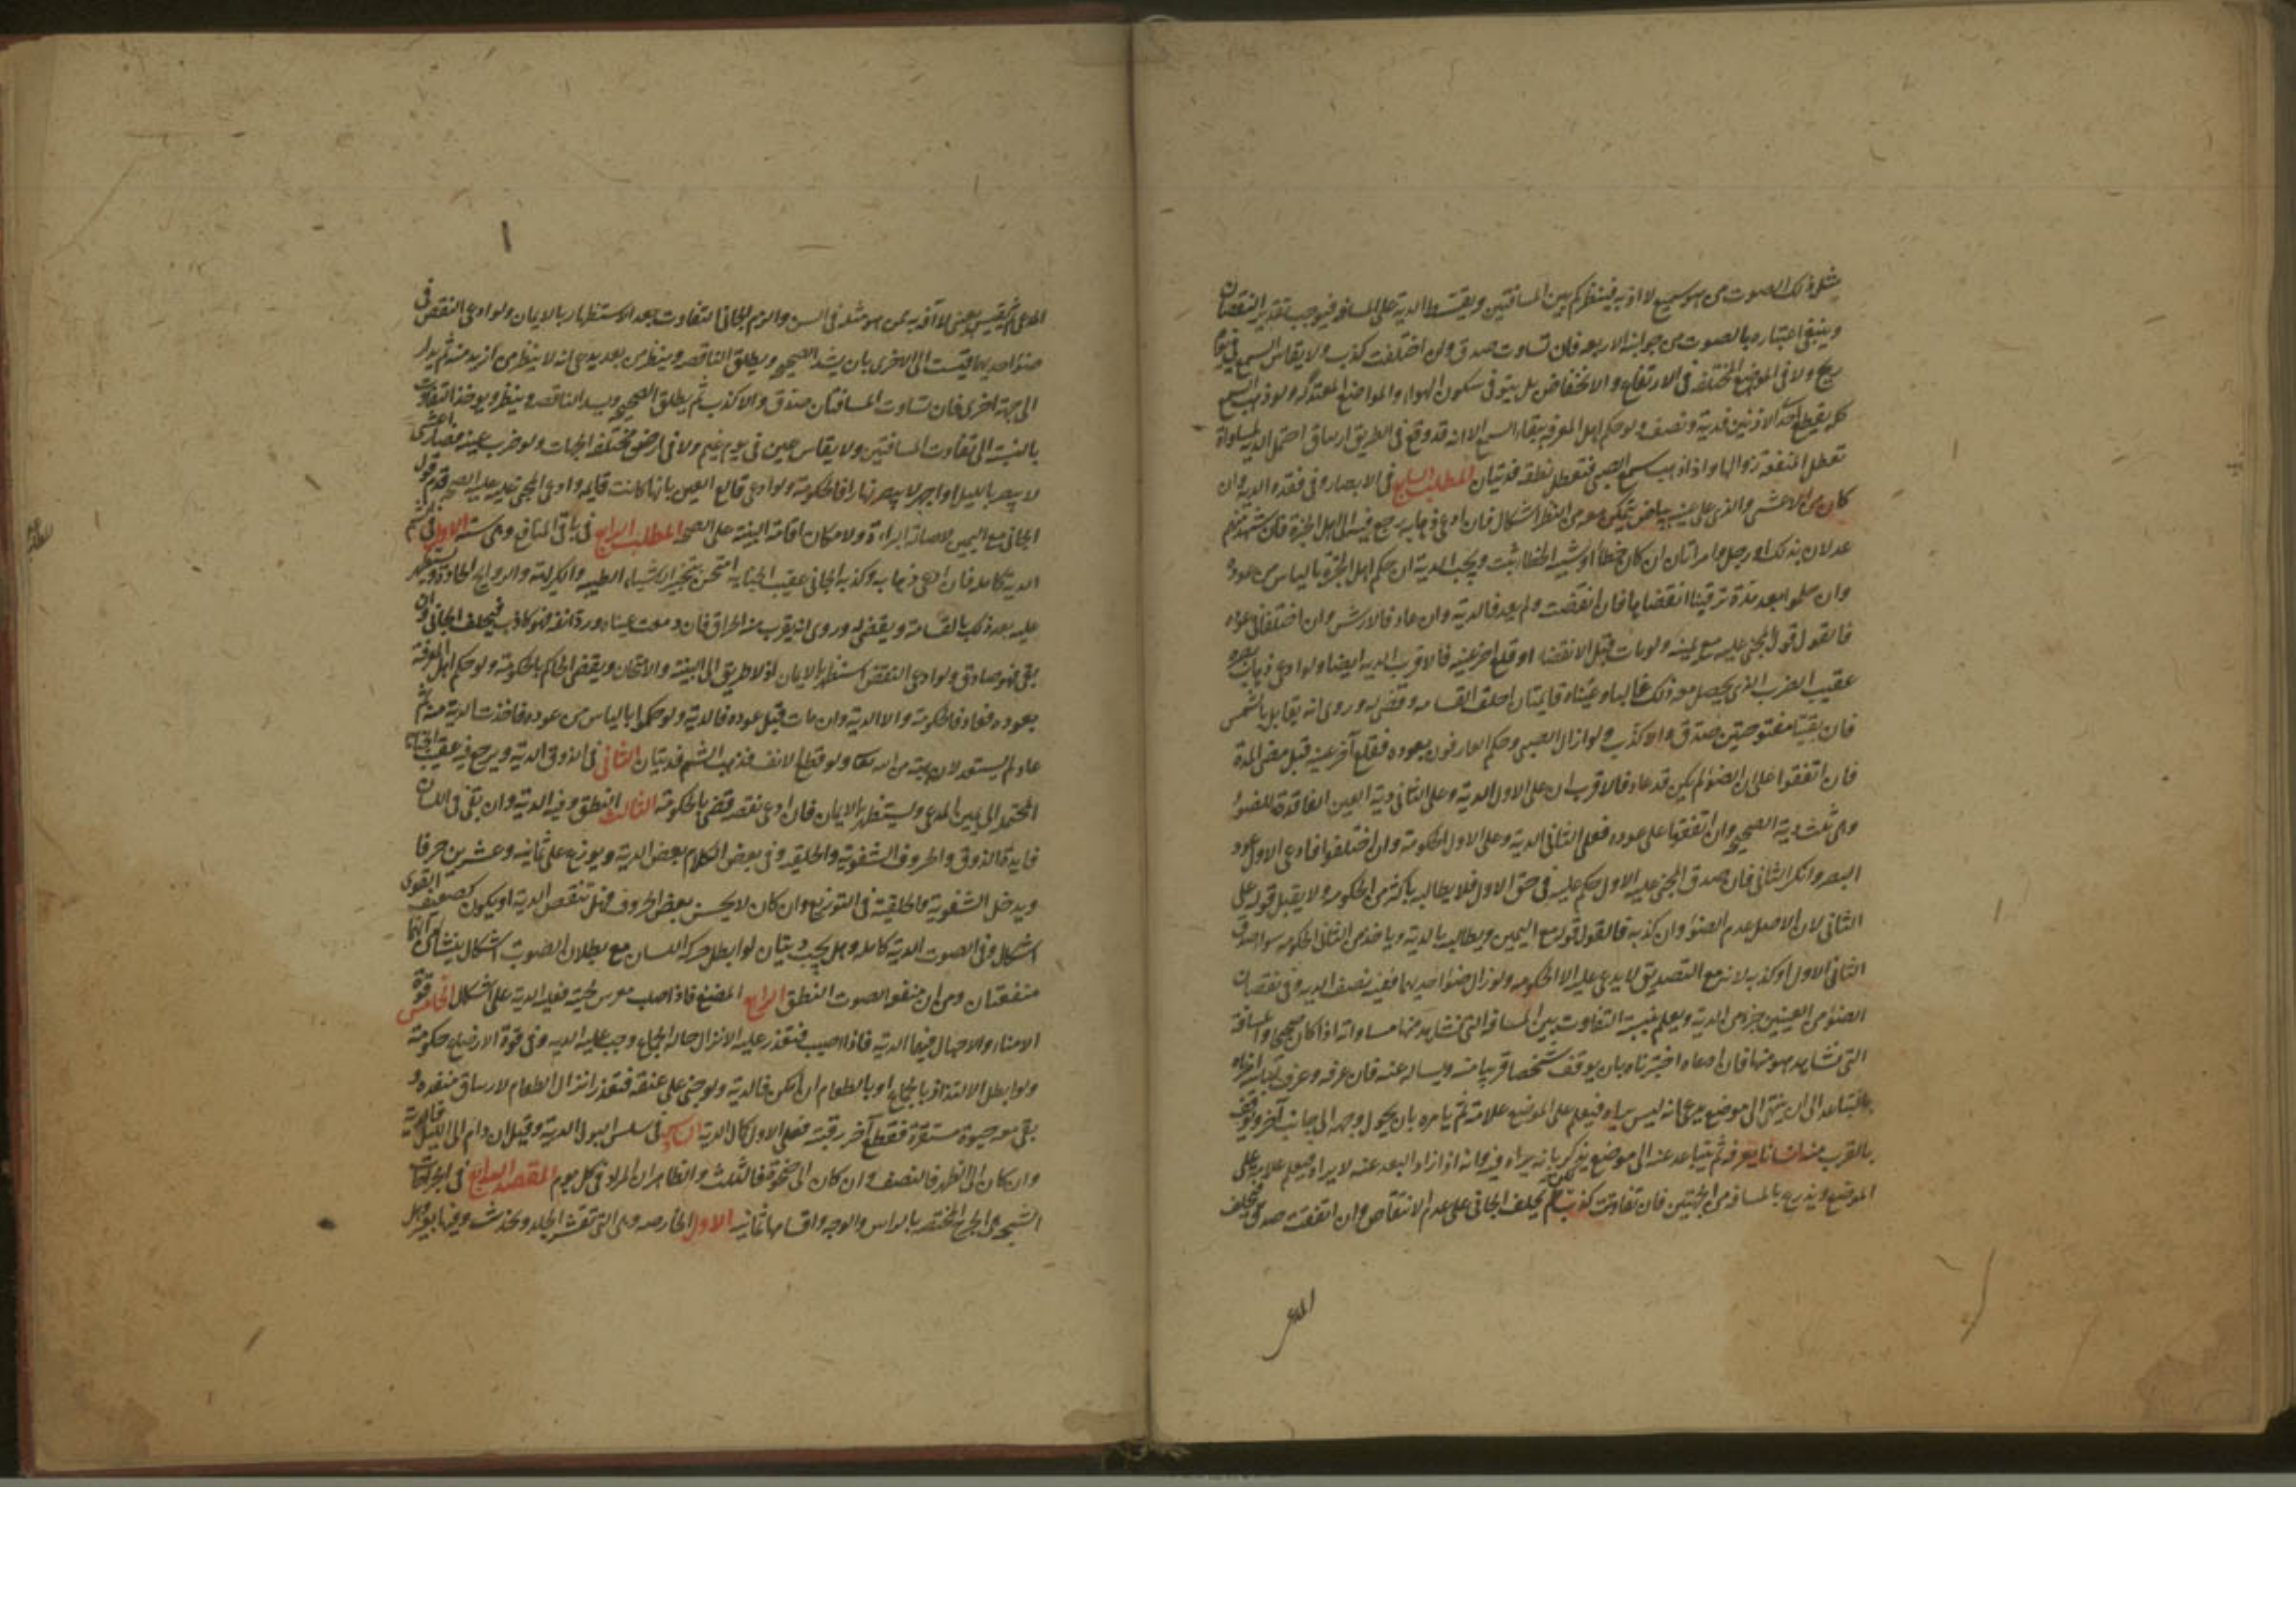 مثل ذلك الصوت من هو سميع لا آفة به فينظر كم بين المسافتين ويقسط الدية على المسافة فيوجب بقدر النقصان
وينبغي اعتباره بالصوت من جوانبه الاربعة فان تساوت صدق وان اختلفت كذب ولا يقاس السمع في يوم
ريح ولا في المواضع المختلفة في الارتفاع والانخفاض بل يتوخى سكون الهواء والمواضع المعتدلة ولو ذهب السمع
كله بقطع احد الاذنين فدية ونصف ولو حكم اهل المعرفة ببقاء السمع الا انه قد وقع في الطريق ارتتاق احتمل الدية لمساواة
تعطل المنفعة زوالها واذا ذهب سمع الصبي فتعطل نطقه فديتان المطلب الثالث في الابصار وفي فقده الدية وان
كان من الاعشى والذي على عينه بياض يتمكن معه من النظر اشكال فان ادعى ذهابه رجع فيه الى اهل الخبرة فان شهد منهم
عدلان بذلك او رجل وامراتان ان كان خطأ او شبيه الخطا ثبت ويجب الدية ان حكم اهل الخبرة بالياس من عوده
وان حكموا بعوده بعد مدة ترقبنا انقضاءها فان انقضت ولم يعد فالدية وان عاد فالارش وان اختلفا في عوده
فالقول قول المجني عليه مع يمينه ولو مات قبل الانقضاء او قلع اخر عينه فالاقرب الدية ايضا ولو ادعى ذهاب بصره
عقيب الضرب الذي يحصل معه ذلك غالبا وعيناه قائمتان احلف القسامة وقضي له وروي انه يقابل بالشمس
فان بقيتا مفتوحتين صدق والا كذب ولو ازال الصبي وحكم العارفون بعوده فقلع آخر عينه قبل مضي المدة
فان اتفقوا على ان الضوء لم يكن قد عاد فالاقرب ان على الاول الدية وعلى الثاني دية العين الفاقدة للضوء
وهي ثلث دية الصحيح وان اتفقوا على عوده فعلى الثاني الدية وعلى الاول الحكومة وان اختلفوا فادعى الاول عود
البصر وانكر الثاني فان صدق المجني عليه الاول حكم عليه في حق الاول فلا يطالبه باكثر من الحكومة ولا يقبل قوله على
الثاني لان الاصل عدم الضوء وان كذبه فالقول قوله مع اليمين ويطالبه بالدية وياخذ من الثاني الحكومة سواء صدق
الثاني الاول او كذبه لانه مع التصديق لا يدعي عليه الا الحكومة ولو زال ضوء احديهما ففيه نصف الدية وفي نقصان
الضوء من العينين جزء من الدية ويعلم بنسبة التفاوت بين المسافة التي تشاهد منها مساواته اذا كان صحيحا والمسافة
التي شاهد هو منها فان ادعاه اختبرناه بان يوقف شخصا قريبا منه ويساله عنه فان عرفه وعرف امره
بالتباعد الى ان ينتهي الى موضع يدعي انه ليس يراه فيعلم على الموضع علامة ثم يامره بان يحول وجهه الى جانب آخر ويوقف
بالقرب منه انسانا يعرفه ثم يتباعد عنه الى موضع يذكر بانه يراه فيه وانه اذا زاد البعد عنه لا يراه ويعلم علامة على
الموضع ويذرع بالمسافة من الجهتين فان تفاوتت كذب ثم يحلف الجاني على عدم الانتقاص وان اتفقت صدق فيحلف
المدعي
المدعي ثم يقيس بعيني لا آفة به من هو مثله في السن والزم الجاني التفاوت بعد الاستظهار بالايمان ولو ادعى النقص في
ضوء احديهما قيست الى الاخرى بان يشد الصحيحة ويطلق الناقصة وينظر من بعد يدعي انه لا ينظر من ازيد منه ثم يدار
الى جهة اخرى فان تساوت المسافتان صدق والا كذب ثم يطلق الصحيحة ويسد الناقصة وينظر ويوخذ التفاوت
بالنسبة الى تفاوت المسافتين ولا يقاس عين في يوم غيم ولا في ارض مختلفة الجهات ولو ضرب عينه فصار اعشى
لا يبصر بالليل او اجهر لا يبصر نهارا فالحكومة ولو ادعى قالع العين بانها كانت قايمة وادعى المجني عليه الصحة قدم قول
الجاني مع اليمين لاصالة البراءة ولامكان اقامة البينة على الصحة المطلب الرابع في باقي المنافع وهي ستة الاول الشم
الدية كاملة فان ادعى ذهابه وكذبه الجاني عقيب الجناية امتحن بتبخير الاشياء الطيبة والكريهة والروايح الحادة ويستظهر
عليه بعد ذلك بالقسامة ويقضى له وروي انه يقرب منه الحراق فان دمعت عيناه ورد انفه فهو كاذب فيحلف الجاني وان
بقي فهو صادق ولو ادعى النقص استظهر بالايمان اذ لا طريق الى البينة والامتحان ويقضي الحاكم بالحكومة ولو حكم اهل المعرفة
بعوده فعاد فالحكومة والا الدية وان مات قبل عوده فالدية ولو حكموا بالياس من عوده فاخذت الدية منه ثم
عاد لم يستعد لانه هبة من الله تعالى ولو قطع الانف فذهب الشم فديتان الثاني في الذوق الدية ويرجع فيه عقيب الجناية
المحتملة الى يمين المدعي ويستظهر بالايمان فان ادعى نقصه قضي بالحكومة الثالث النطق وفيه الدية وان بقي في اللسان
فايدة الذوق والحروف الشفوية والحلقية وفي بعض الكلام بعض الدية ويوزع على ثمانية وعشرين حرفا
ويدخل الشفوية والحلقية في التوزيع وان كان لا يحسن بعض الحروف فهل تنقص الدية او يكون كضعيف القوى
اشكال وفي الصوت الدية كاملة وهل يجب ديتان لو ابطل حركة اللسان مع بطلان الصوت اشكال ينشا من انهما
منفعتان ومن ان منفعة الصوت النطق الرابع المضغ فاذا صلب مغرس لحيته فعليه الدية على اشكال الخامس قوة
الامناء والاحبال فيهما الدية فاذا اصيب فتعذر عليه الانزال حالة الجماع وجب عليه الدية وفي قوة الارضاع حكومة
ولو ابطل الالتذاذ بالجماع او بالطعام ان امكن فالدية ولو جني على عنقه فتعذر انزال الطعام لارتتاق منفذه و
بقي معه حيوة مستقرة فقطع آخر رقبته فعلى الاول كمال الدية السادس في سلس البول الدية وقيل ان دام الى الليل فالدية
وان كان الى الظهر فالنصف وان كان الى ضحوة فالثلث والظاهر ان المراد في كل يوم المقصد الرابع في الجراحات
الشجة هي الجرح المختصة بالراس والوجه واقسامها ثمانية الاول الحارصة وهي التي تقشر الجلد وتخدشه وفيها بعير وهل